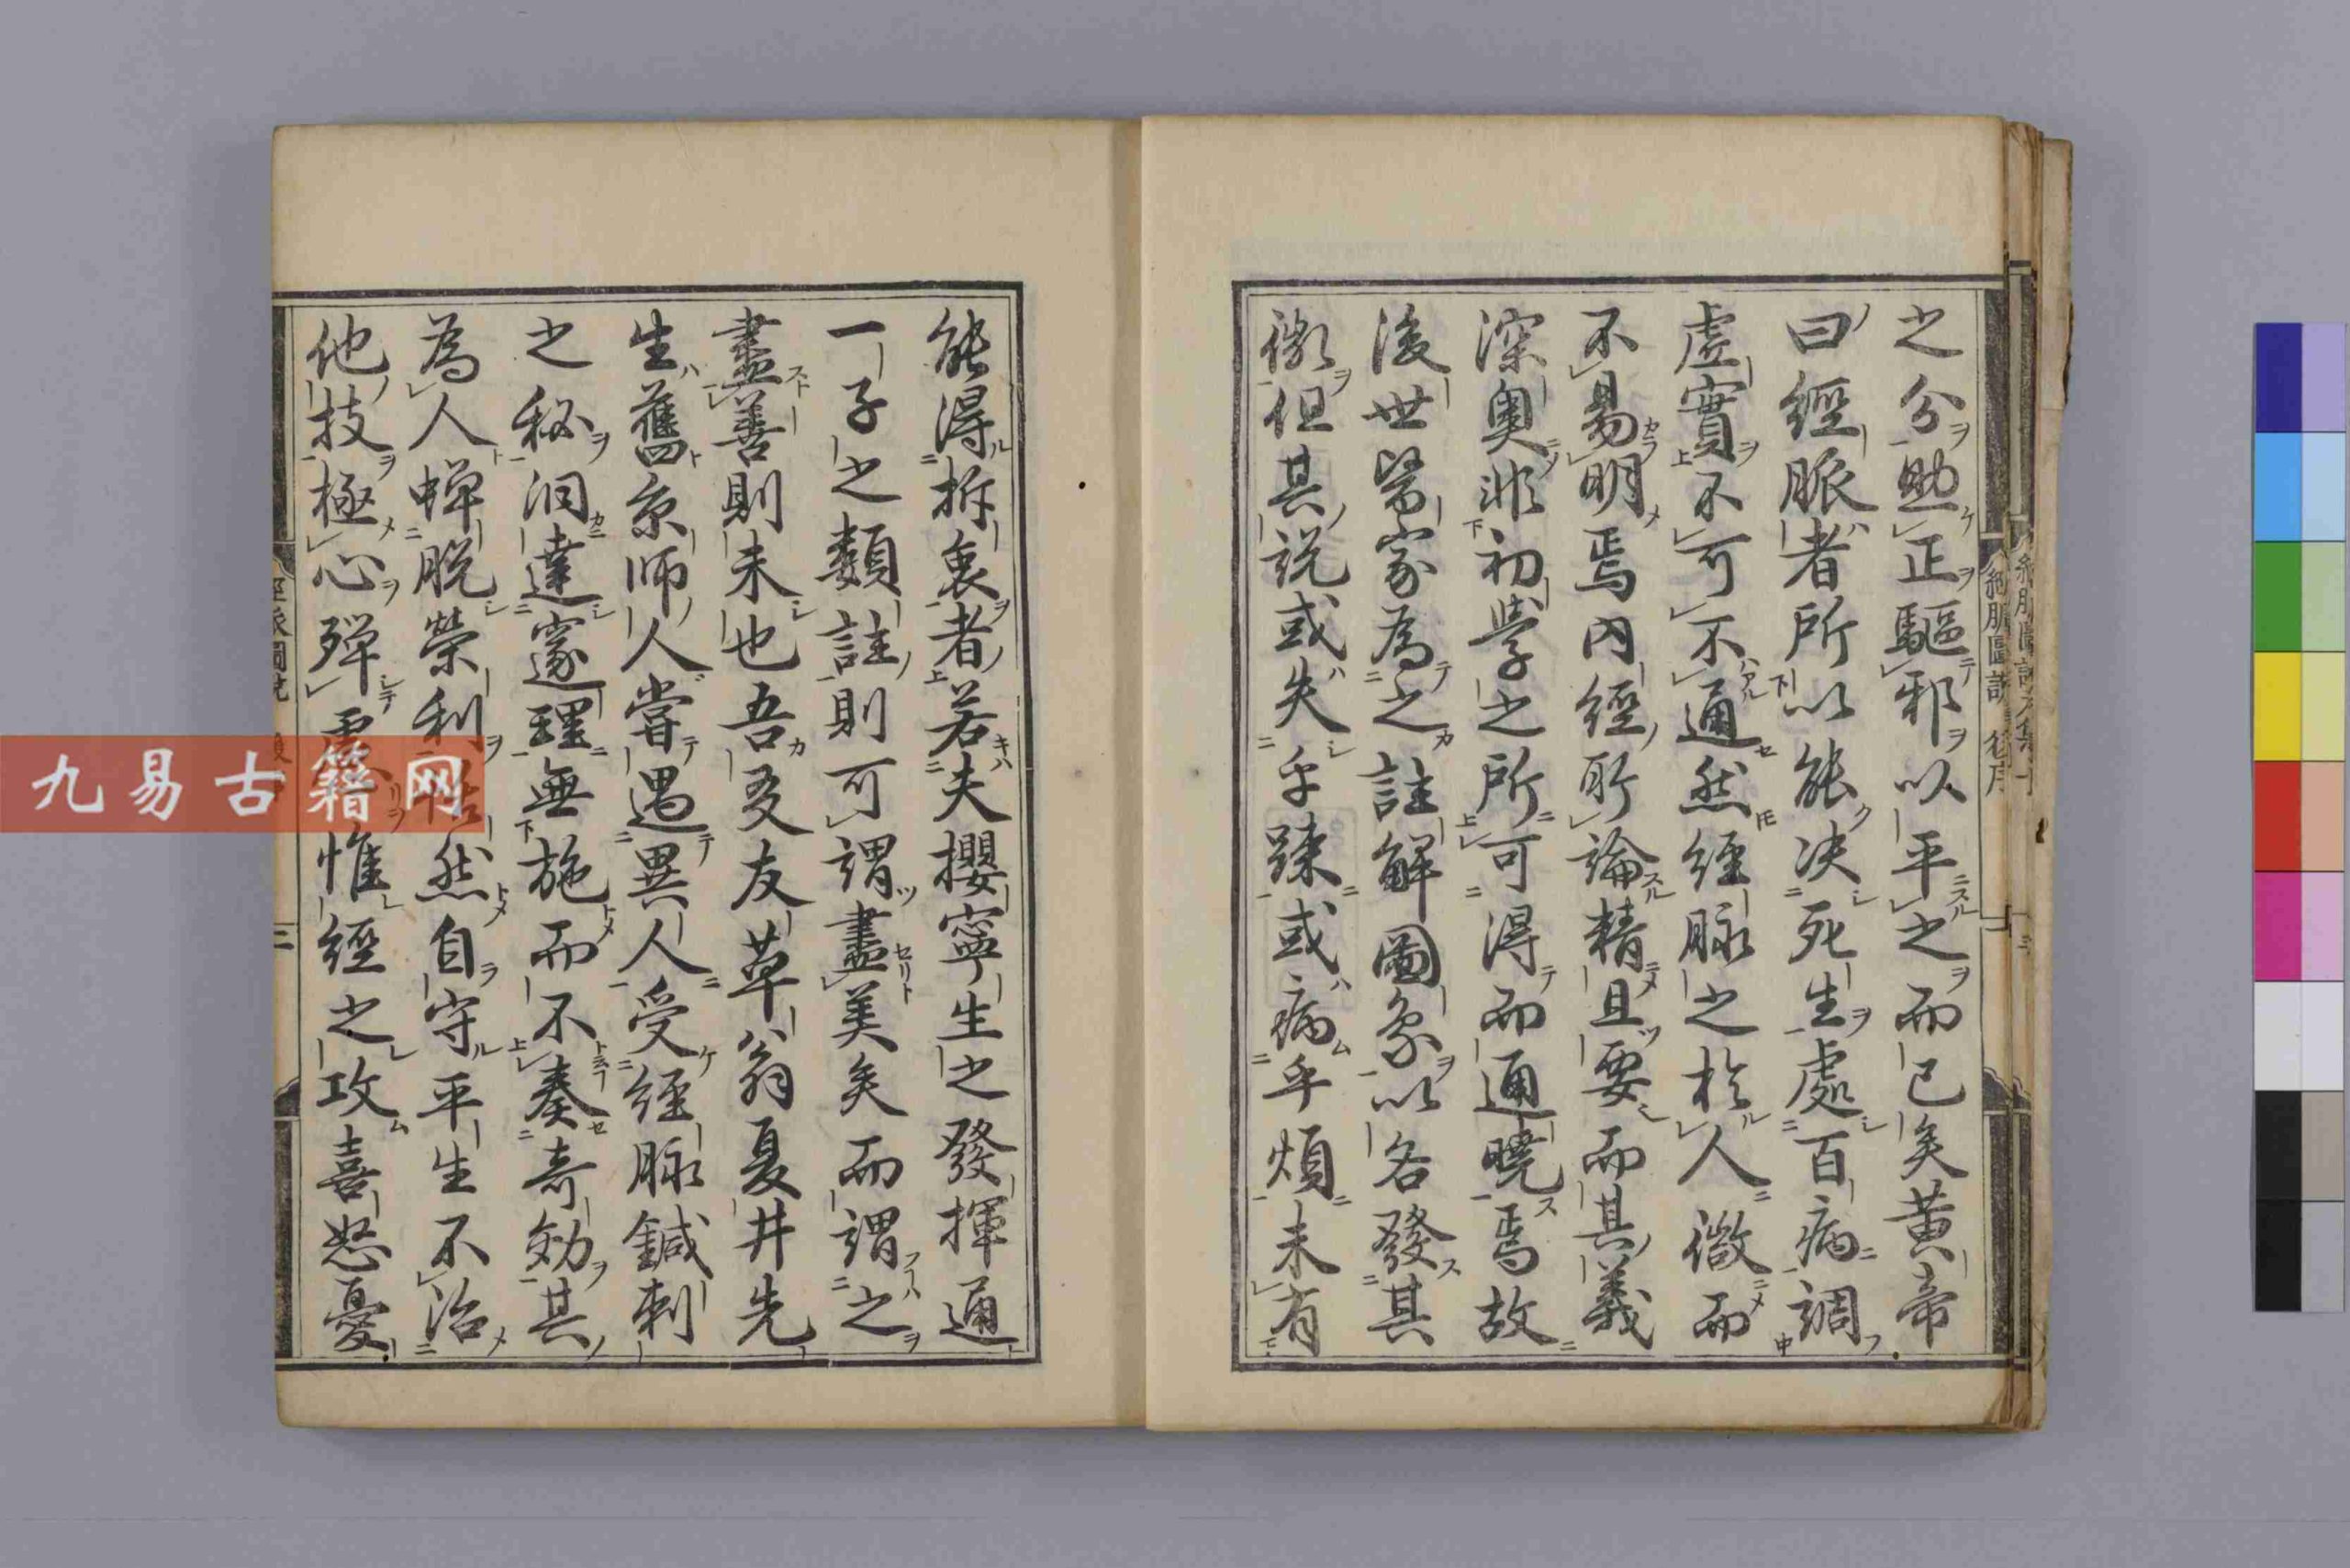 之分助正驅邪以平之而已矣黃帝
曰經脈者所以能決死生處百病調
虛實不可不通然經脉之於人微而
不易明焉內經所論精且要而其義
深奧非初學之所可得而通曉焉故
後世醫家為之註解圖象以各發其
微但其説或失乎踈或病乎煩未有
能得折衷者若夫攖寧生之發揮通
一子之類註則可謂盡美矣而謂之
盡善則未也吾友草翁夏井先
生舊京師人嘗遇異人受經脉鍼刺
之秘洞達邃理無施而不奏奇効其
為人蟬脫榮利然自守平生不治
他技極心殫惟經之攻喜怒憂
九易古籍网